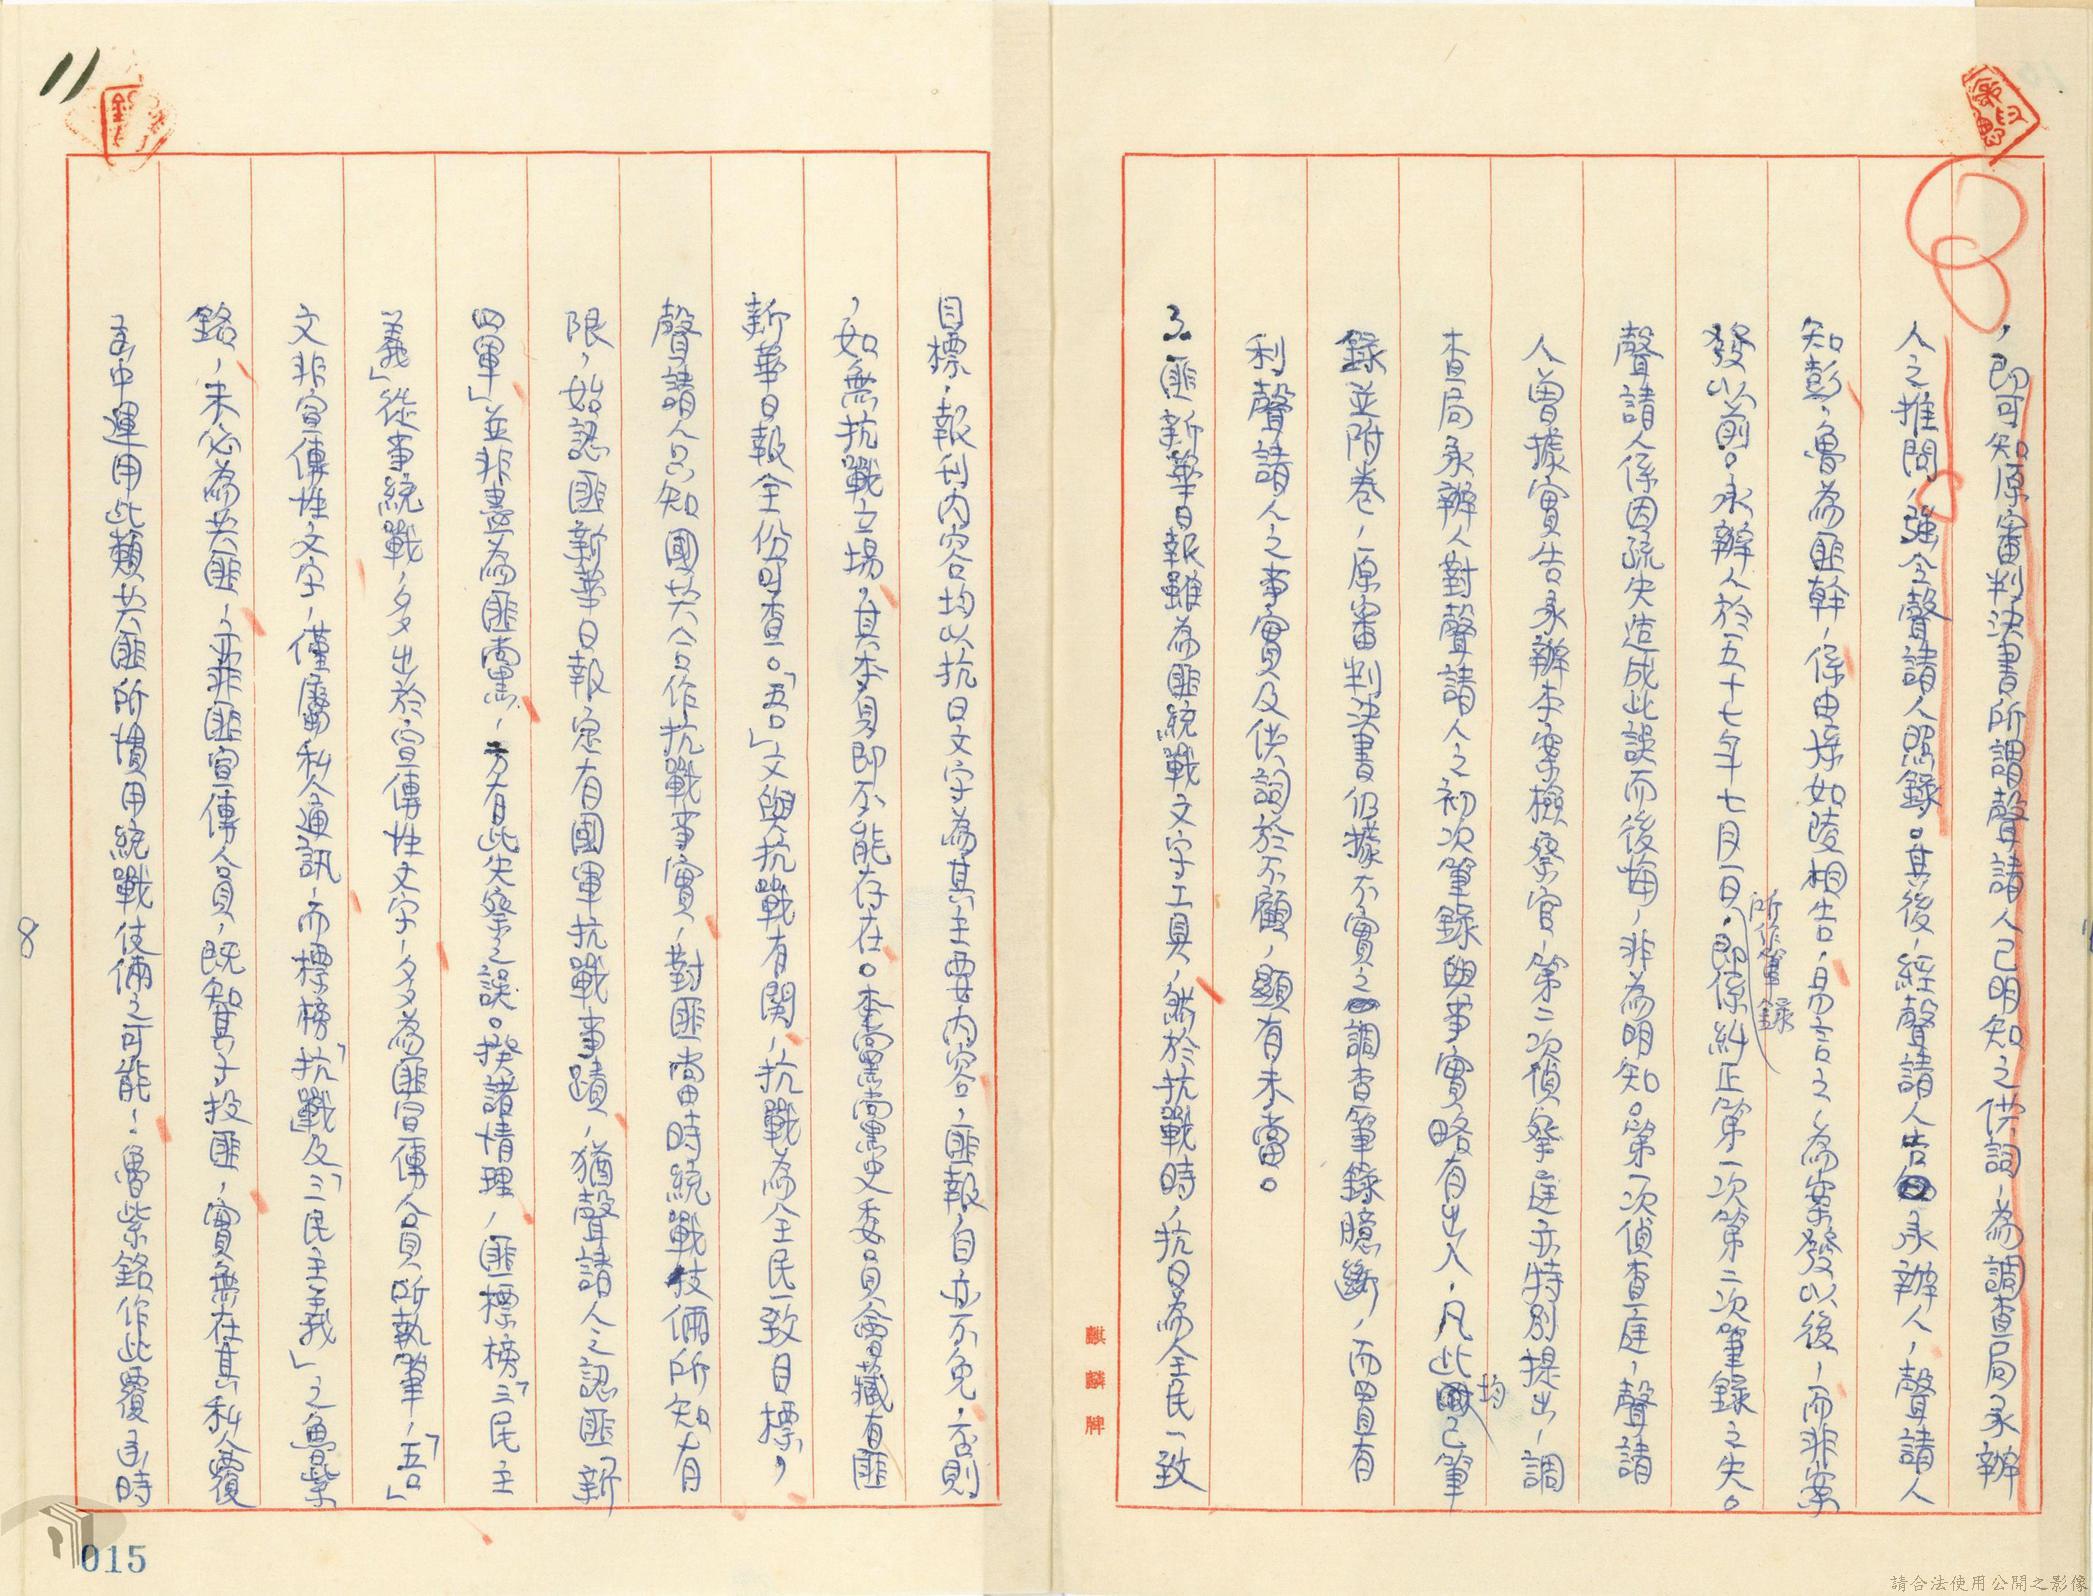 ，即可知原審判決書所謂聲請人已明知之供詞，為調查局承辦
人之推問，強令聲請人照錄。其後，經聲請人告知承辦人，聲請人
知彭、魯為匪幹，係由梁如陵相告，易言之，為案發以後，而非案
發以前。承辦人於五十七年七月一日，所作筆錄即係糾正第一次第二次筆錄之失。
聲請人係因疏失造成此誤而後悔，非為明知。第一次偵查庭，聲請
人曾據實告承辦本案檢察官，第二次偵察庭亦特別提出，調
查局承辦人對聲請人之初次筆錄與事實略有出入，凡此均已筆
錄並附卷，原審判決書仍據不實之調查筆錄臆斷，而置有
利聲請人之事實及供詞於不顧，顯有未當。
匪新華日報雖為匪統戰文字工具，然於抗戰時，抗日為全民一致
目標，報刊內容均以抗日文字為其主要內容，匪報自亦不免，否則
，如無抗戰立場，其本身即不能存在。本黨黨史委員會藏有匪
新華日報全份可查。「五口」文與抗戰有關，抗戰為全民一致目標，
聲請人只知國共合作抗戰事實，對匪當時統戰技倆所知有
限，始認匪新華日報忽有國軍抗戰事蹟，猶聲請人之認匪新
四軍」並非盡為匪黨，方有此失察之誤。揆諸情理，匪標榜「三民主
義」從事統戰，多出於宣傳性文字，多為匪宣傳人員所執筆，「五口」
文非宣傳性文字，僅屬私人通訊，而標榜「抗戰」及「三民主義」之魯紫
銘，未必為共匪，亦非匪宣傳人員，既知其子投匪，實無在其私人覆
函中運用此類共匪所慣用統戰伎倆之可能，魯紫銘作此覆函時
11
8
麒麟牌
015
請合法使用公開之影像